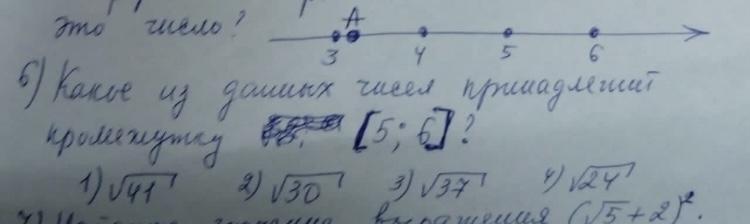 это число?
A
3 4 5 6
6) Какое из данных чисел принадлежит
промежутку [5; 6]?
1) √41 2) √30 3) √37 4) √24
выражения (√5 + 2)².